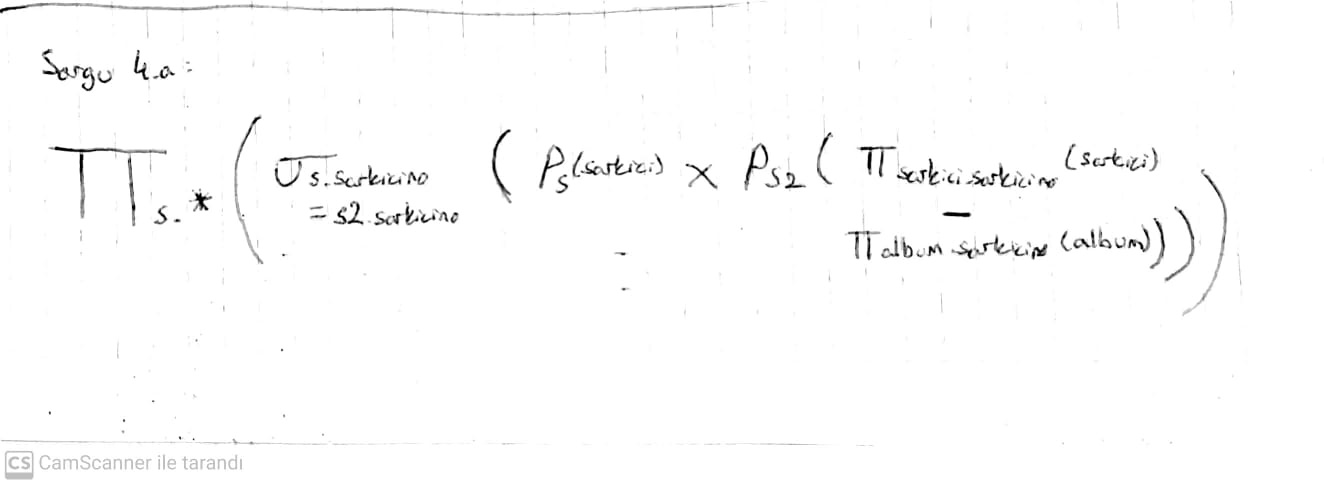 Sorgu 4.a:
π s.* ( σ s.sarkicino = s2.sarkicino ( ρ s (sarkici) × ρ s2 ( π sarkici.sarkicino (sarkici)
−
π album.sarkicino (album) ) ) )
CS CamScanner ile tarandı